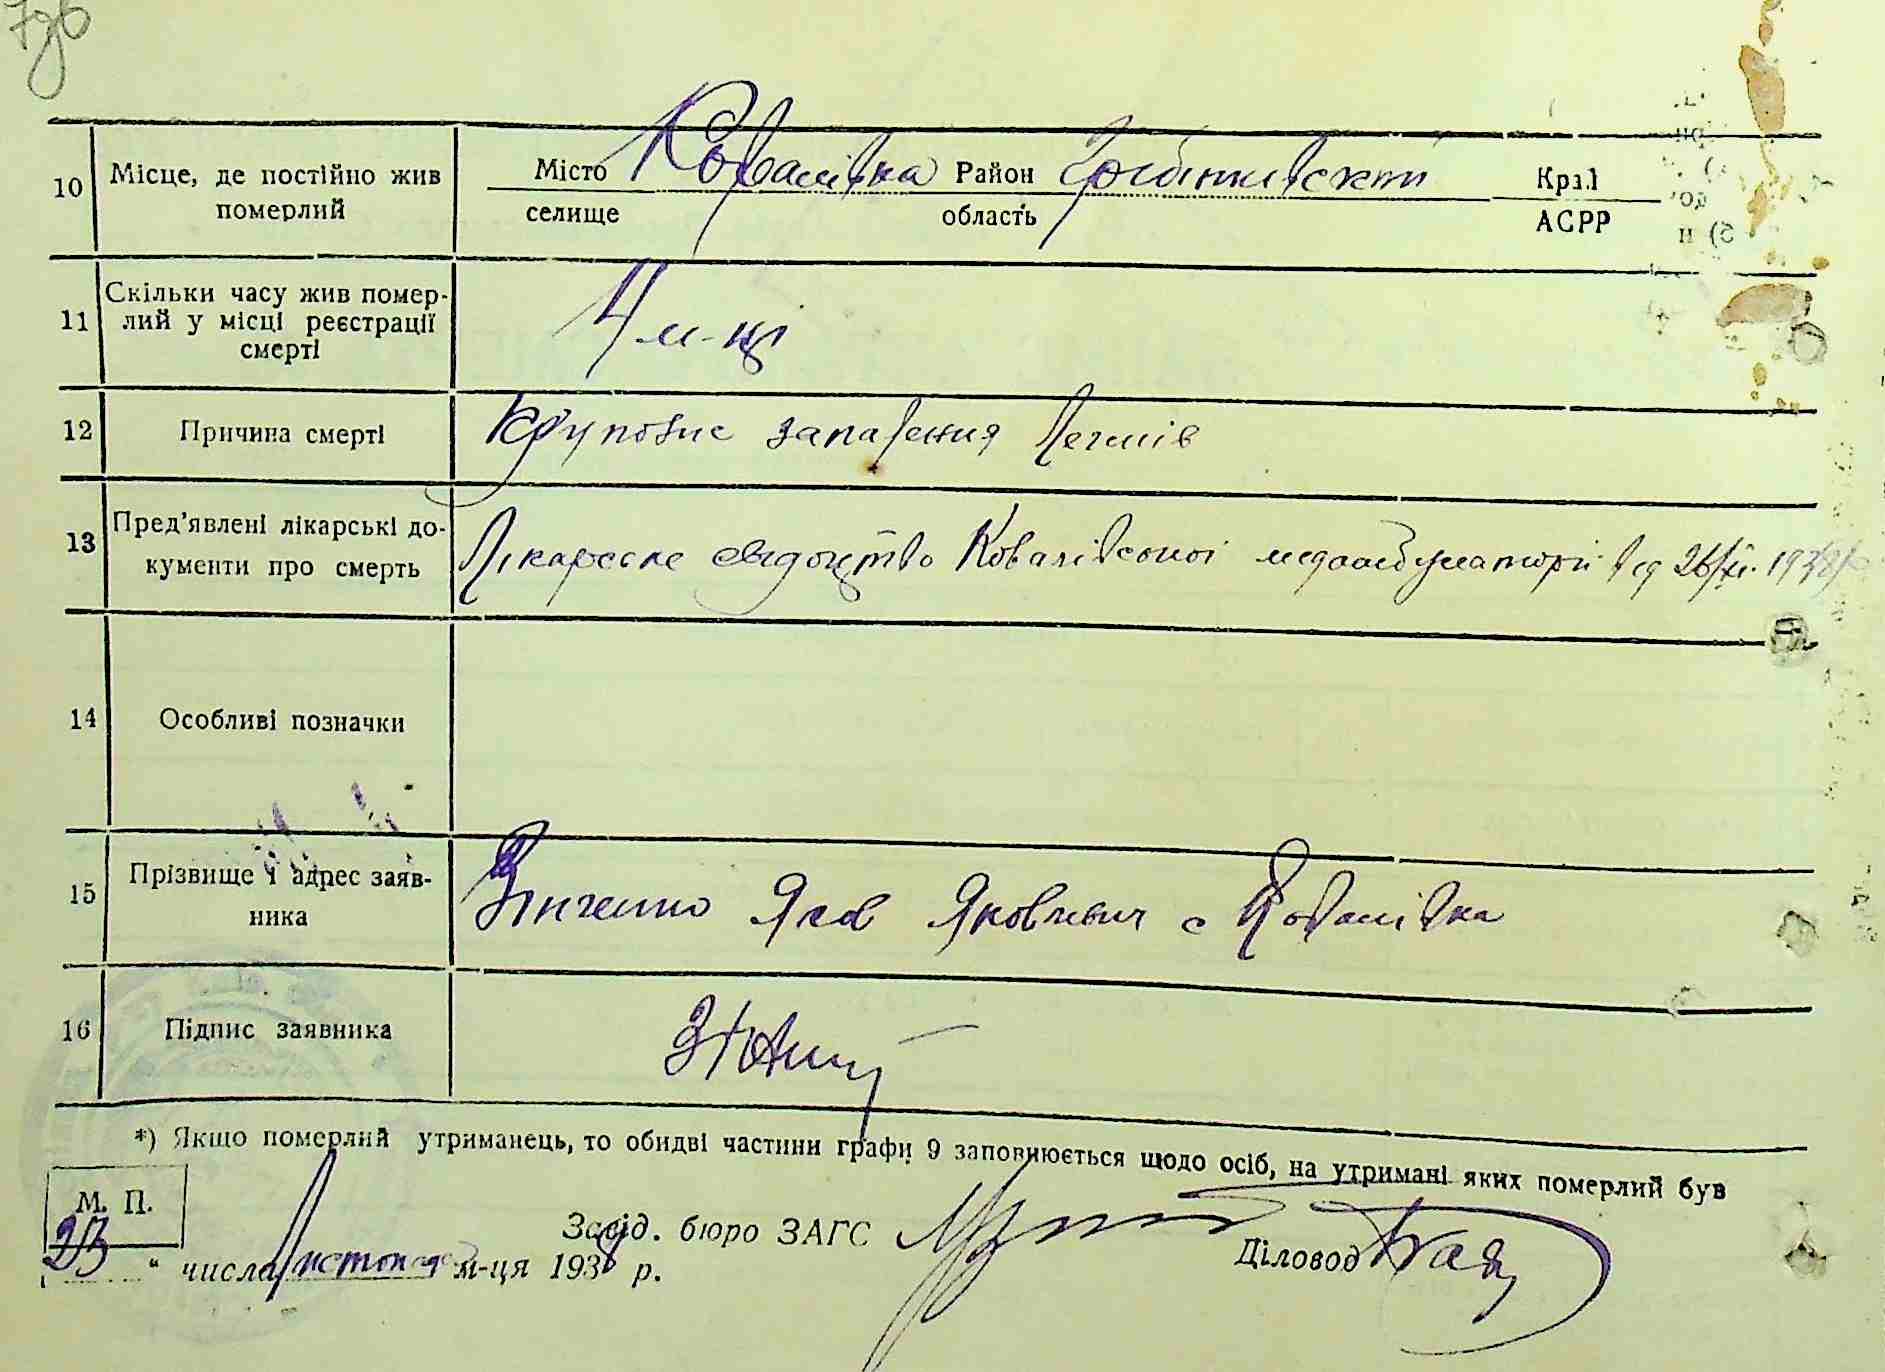 10 Місце, де постійно жив Місто Ковалівка Район Край
померлий селище область АСРР
11 Скільки часу жив помер-
лий у місці реєстрації 4 м-ці
смерті
12 Причина смерті Крупозне запалення легенів
13 Пред'явлені лікарські до-
кументи про смерть Лікарське свідоцтво Ковалівської медамбулаторії від 26/XI. 1938
14 Особливі позначки
15 Прізвище і адрес заяв- Яков Якович с Ковалівка
ника
16 Підпис заявника
*) Якщо померлий утриманець, то обидві частини графи 9 заповнюється щодо осіб, на утримані яких померлий був
М. П.
Завід. бюро ЗАГС
Діловод
" числа листопада м-ця 1938 р.